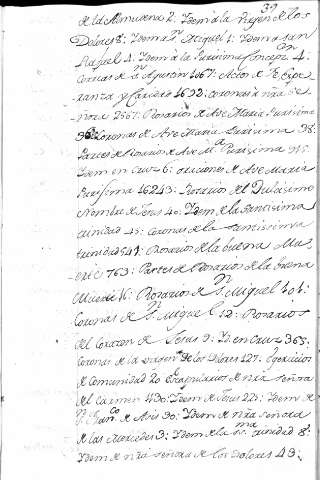 39
de la Almudena 2: Ydem a la Virgen de los
Dolores 8: Ydem a Sn Miguel 1: Ydem a San
Rafael 4: Ydem a la Purisima Concepon 4:
Correas de Sn Agustin 467: Actos de Fe, espe-
ranza y Caridad 4692: coronas a nra Se-
ñora 2567: Rosarios de Ave Maria Purisima
Coronas de Ave Maria Purisima 98:
Partes de Rosarios de Ave Ma Purisima 315:
Ydem en Cruz 6: oraciones de Ave Maria
Purisima 16243: Rosarios del Dulcisimo
Nombre de Jesus 40: Ydem de la Santisima
trinidad 45: Coronas de la Santissima
trinidad 541: Rosarios de la buena Mu-
erte 763: Partes de Rosarios de la buena
Muerte 16: Rosarios de Sn Miguel 404:
Coronas de Sn Miguel 12: Rosarios
del Corazon de Jesus 9: Yd. en Cruz 365:
Coronas de la Virgen de los Dolores 127: Exercicios
de Comunidad 20: Escapularios de nra señora
del Carmen 490: Ydem de Jesus 225: Ydem de
Sn Franco de Asis 90: Ydem de nra señora
de las Mercedes 3: Ydem de la SSma trinidad 8:
Ydem de nra señora de los Dolores 49: